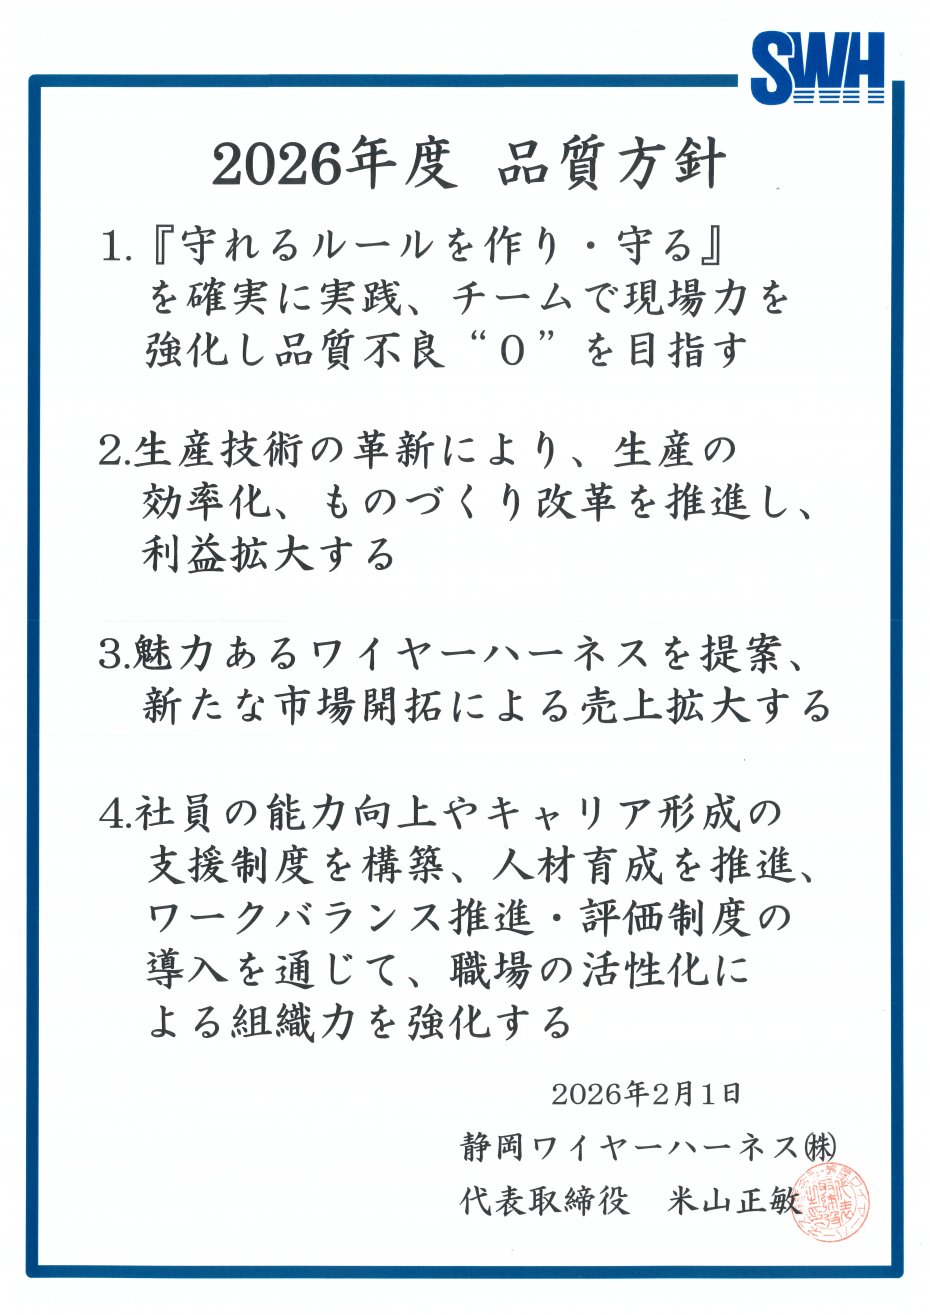 SWH
2026年度 品質方針
1.『守れるルールを作り・守る』
を確実に実践、チームで現場力を
強化し品質不良“0”を目指す
2.生産技術の革新により、生産の
効率化、ものづくり改革を推進し、
利益拡大する
3.魅力あるワイヤーハーネスを提案、
新たな市場開拓による売上拡大する
4.社員の能力向上やキャリア形成の
支援制度を構築、人材育成を推進、
ワークバランス推進・評価制度の
導入を通じて、職場の活性化に
よる組織力を強化する
2026年2月1日
静岡ワイヤーハーネス㈱
代表取締役 米山正敏